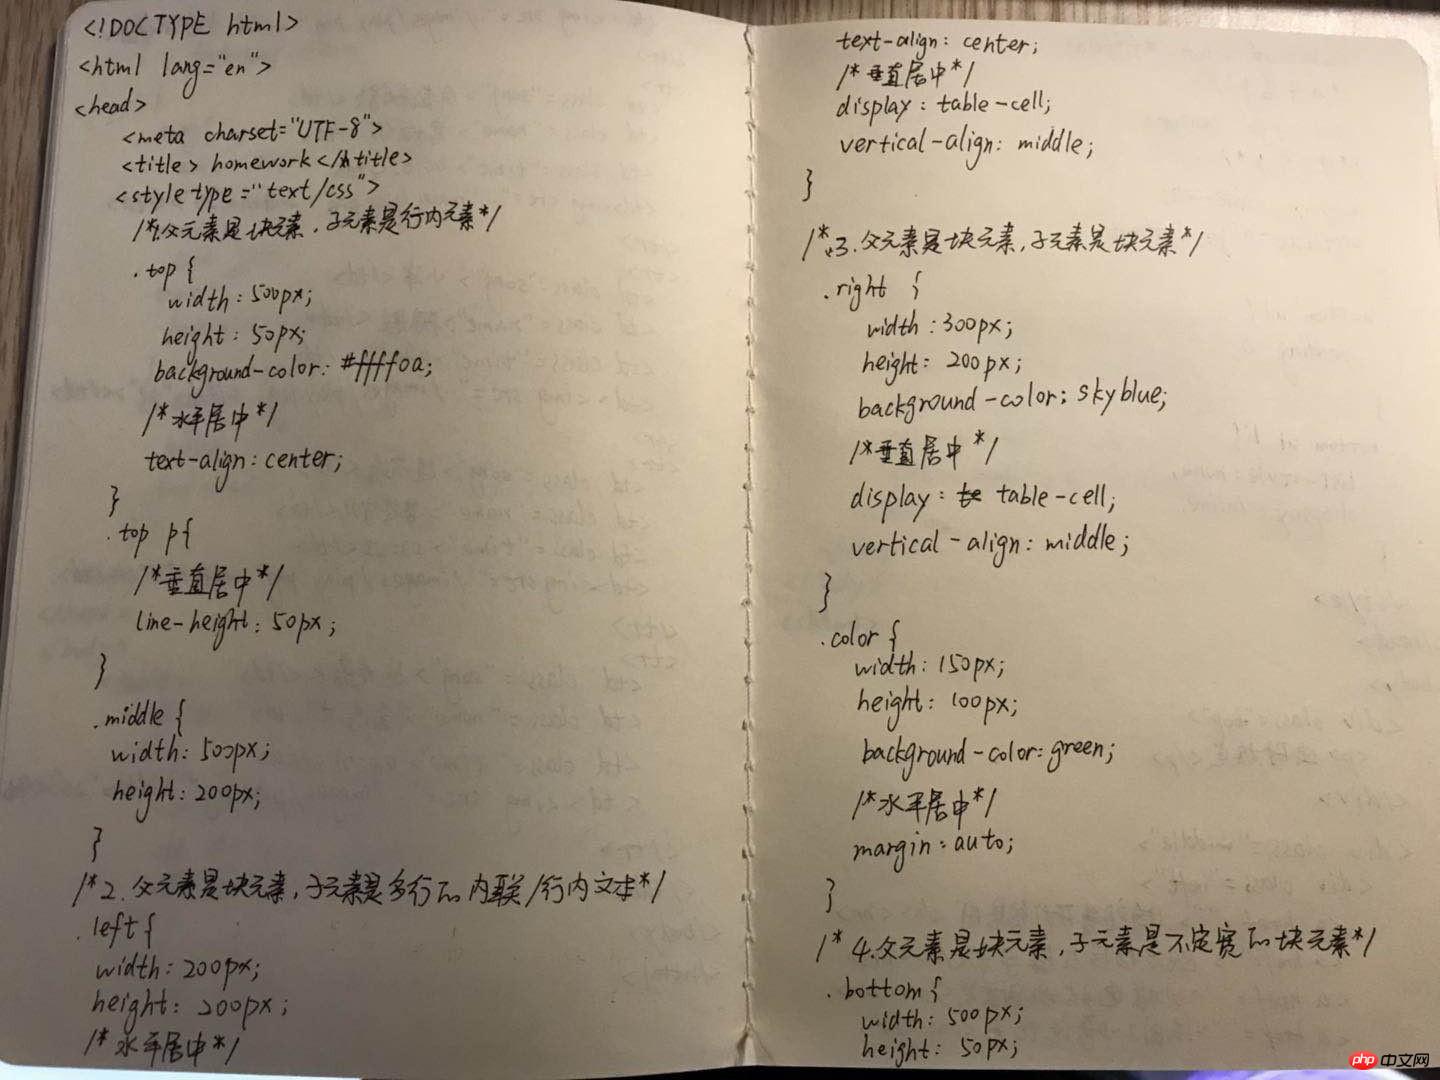 <!DOCTYPE html>
<html lang="en">
<head>
<meta charset="UTF-8">
<title> homework </title>
<style type="text/css">
/*1.父元素是块元素，子元素是行内元素*/
.top {
width: 500px;
height: 50px;
background-color: #ffff0a;
/*水平居中*/
text-align: center;
}
.top p{
/*垂直居中*/
line-height: 50px;
}
.middle {
width: 500px;
height: 200px;
}
/*2.父元素是块元素，子元素是多行的内联/行内文本*/
.left {
width: 200px;
height: 200px;
/*水平居中*/
text-align: center;
/*垂直居中*/
display: table-cell;
vertical-align: middle;
}
/*3.父元素是块元素，子元素是块元素*/
.right {
width: 300px;
height: 200px;
background-color: skyblue;
/*垂直居中*/
display: table-cell;
vertical-align: middle;
}
.color {
width: 150px;
height: 100px;
background-color: green;
/*水平居中*/
margin: auto;
}
/*4.父元素是块元素，子元素是不定宽的块元素*/
.bottom {
width: 500px;
height: 50px;
php 中文网